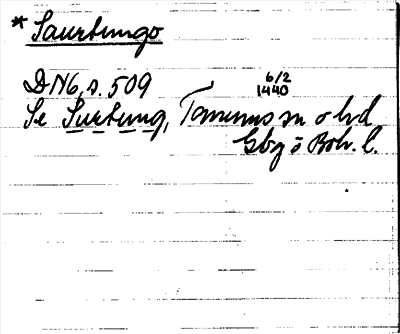 * Saurbungo
DN6, s. 509 6/2 1440
Se Surbung, Tanums sn o hd
Gbg o Boh. l.